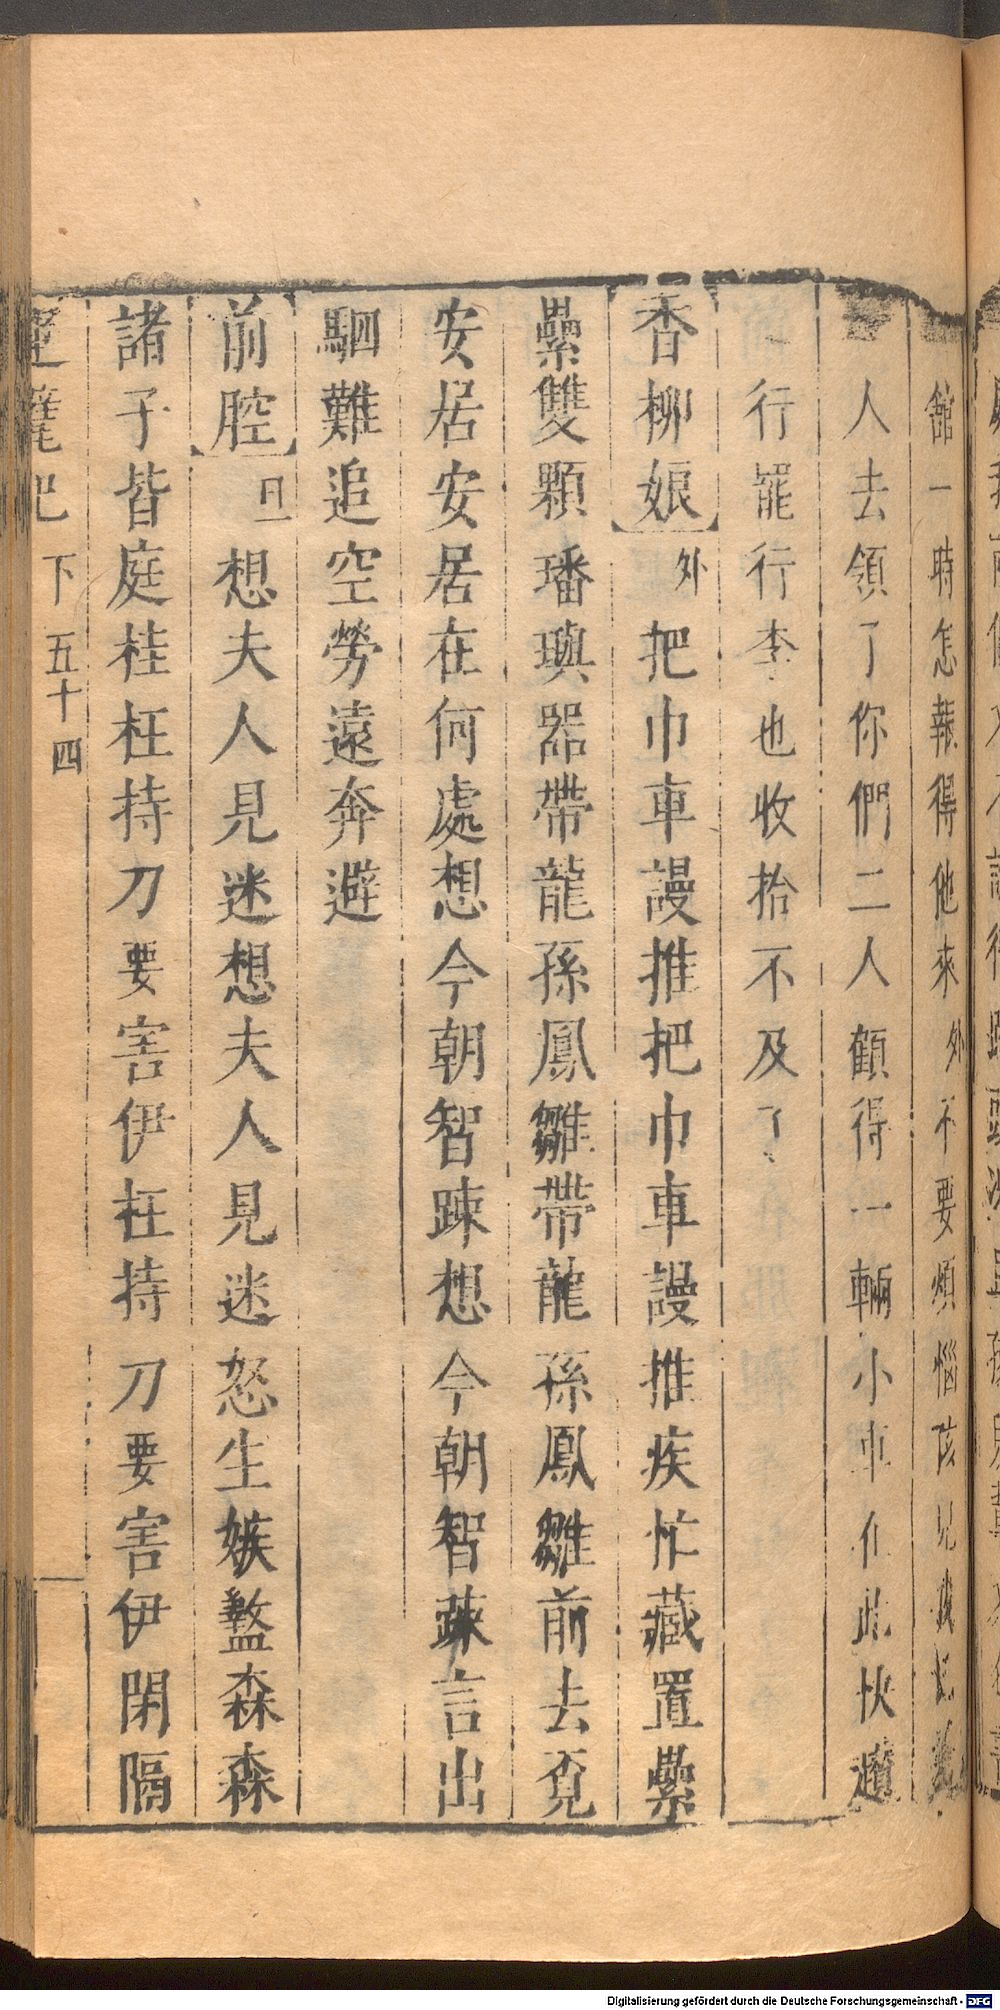 舘一時怎報得他來外不要煩惱孩兒我
人去領了你們二人顧得一輛小車在此快趲
行罷行李也收拾不及了
香柳娘外把巾車謾推把巾車謾推疾忙藏置纍
纍雙顆璠璵器帶龍孫鳳雛帶龍孫鳳雛前去覓
安居安居在何處想今朝智踈想今朝智踈言出
駟難追空勞遠奔避
前腔旦想夫人見迷想夫人見迷怒生嫉螫森森
諸子皆庭桂枉持刀要害伊枉持刀要害伊閉隔
下 五十四
Digitalisierung gefördert durch die Deutsche Forschungsgemeinschaft - DFG